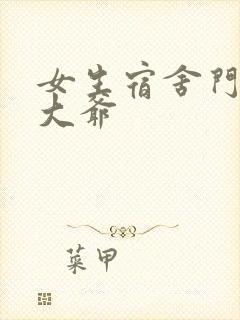 女生宿舍門
大爺
菜甲